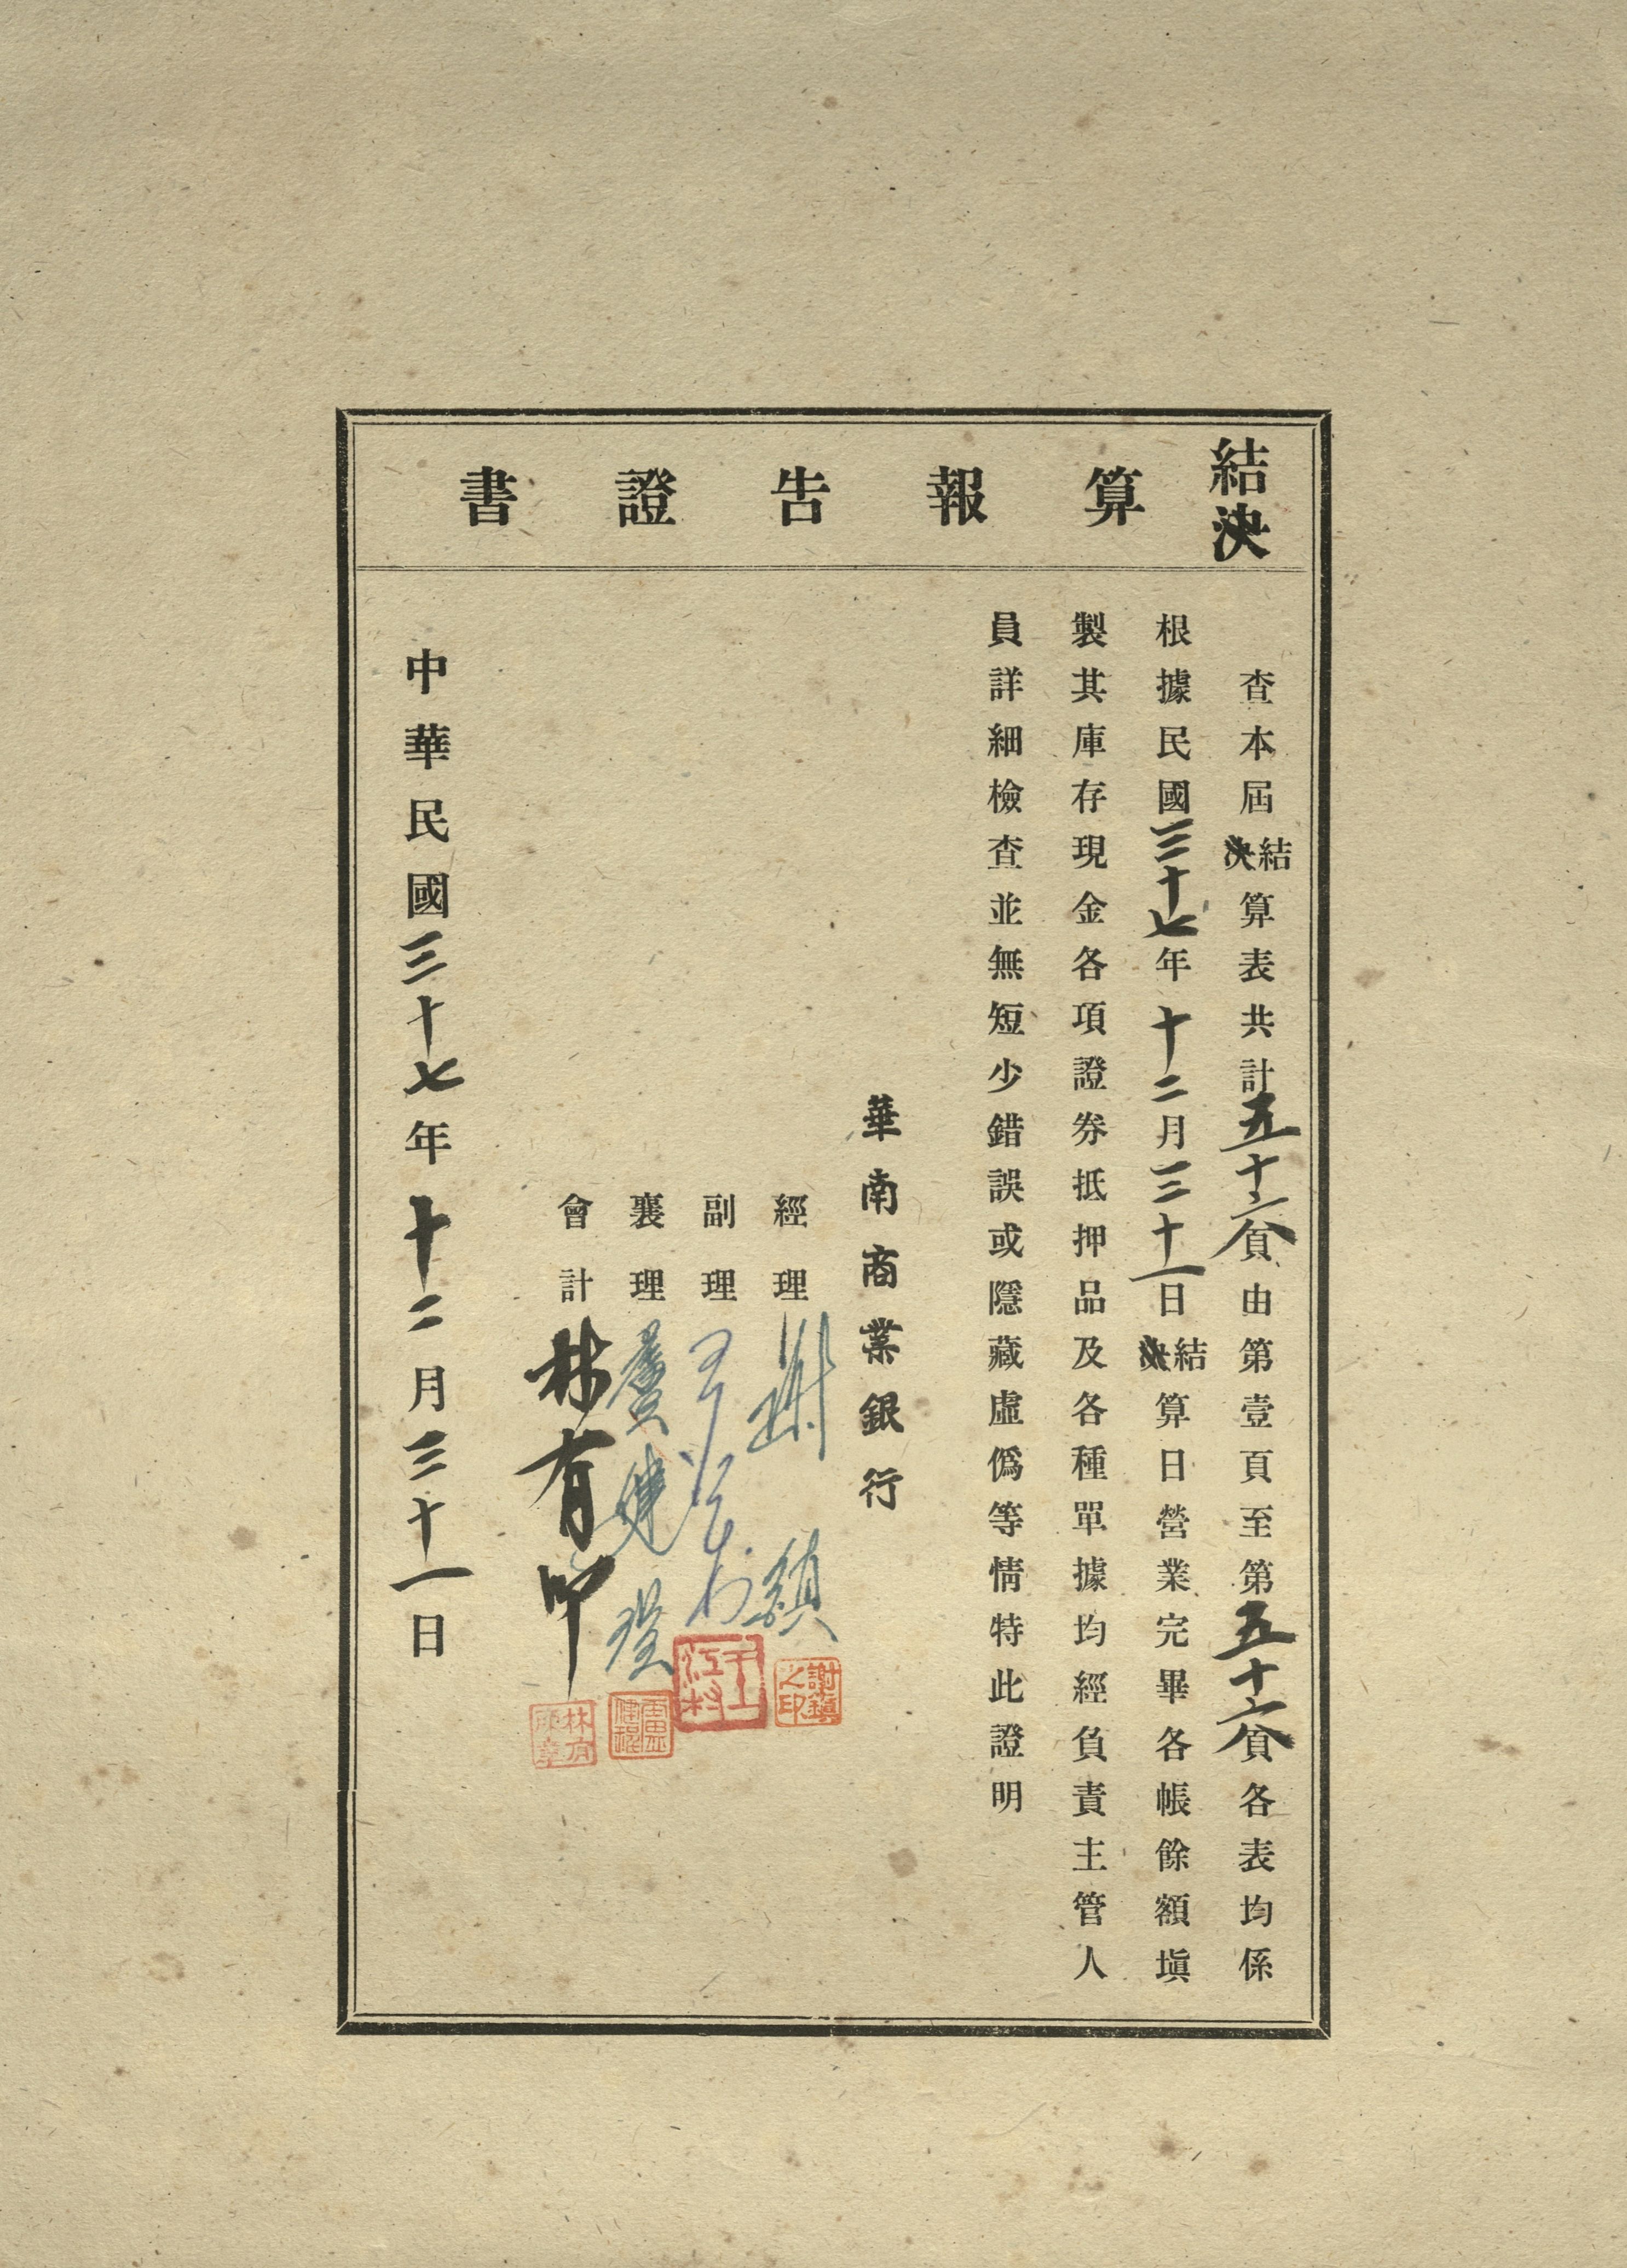 結決算報告證書
查本屆結決算表共計五十六頁由第壹頁至第五十六頁各表均係
根據民國三十七年十二月三十一日結決算日營業完畢各帳餘額塡
製其庫存現金各項證券抵押品及各種單據均經負責主管人
員詳細檢查並無短少錯誤或隱藏虛僞等情特此證明
華南商業銀行
經理 謝鎮
謝鎮之印
副理
襄理
會計 林有
中華民國三十七年十二月三十一日